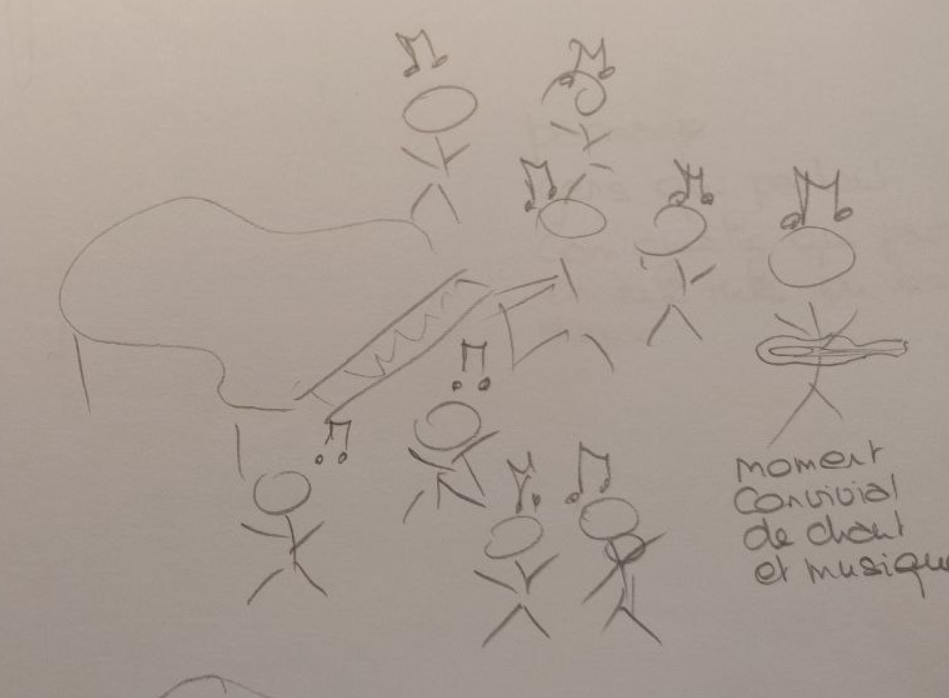 moment
convivial
de chant
et musique